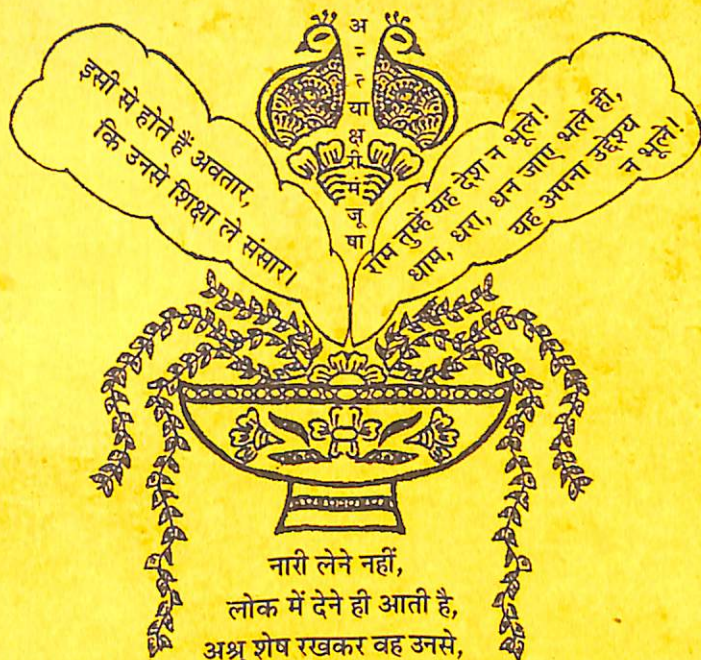 अ
न्
त्
या
क्ष
री
मं
जू
षा
इसी से होते हैं अवतार,
कि उनसे शिक्षा ले संसार।
राम तुम्हें यह देश न भूले!
धाम, धरा, धन जाए भले ही,
यह अपना उद्देश्य
न भूले!
नारी लेने नहीं,
लोक में देने ही आती है,
अश्रु शेष रखकर वह उनसे,